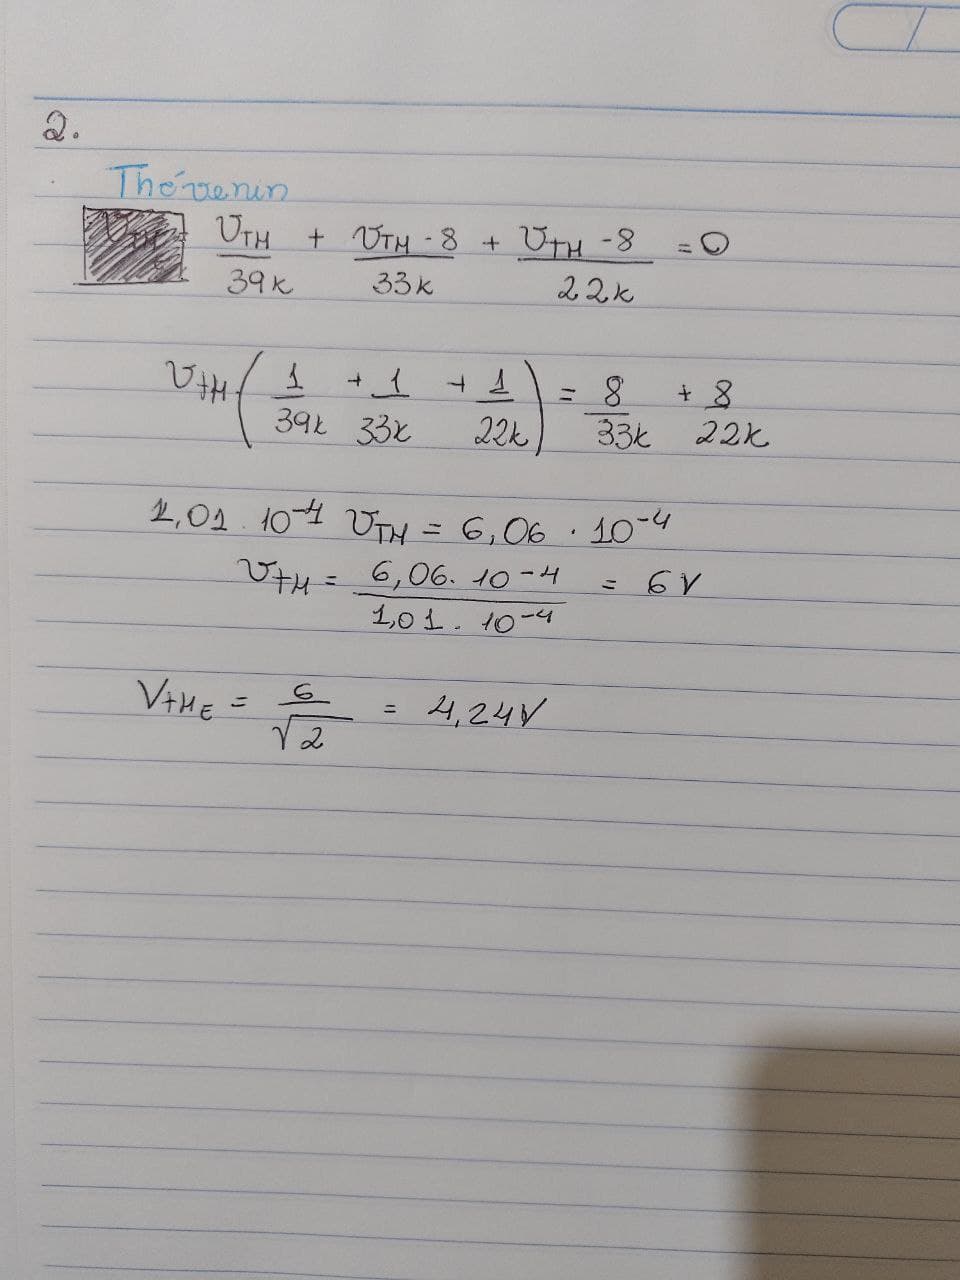 2.
Thévenin
VTH/39k + VTH-8/33k + VTH-8/22k = 0
VTH(1/39k + 1/33k + 1/22k) = 8/33k + 8/22k
1,01 . 10⁻⁴ VTH = 6,06 . 10⁻⁴
VTH = 6,06. 10⁻⁴/1,01. 10⁻⁴ = 6V
VTHE = 6/√2 = 4,24V